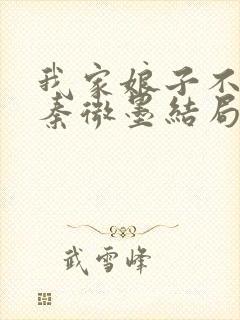 我家娘子不
秦微墨結局
武雪峰